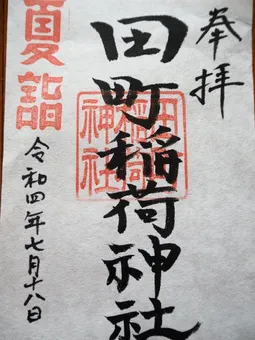 奉拝
田町稲荷神社
神社
夏詣
令和四年七月十八日